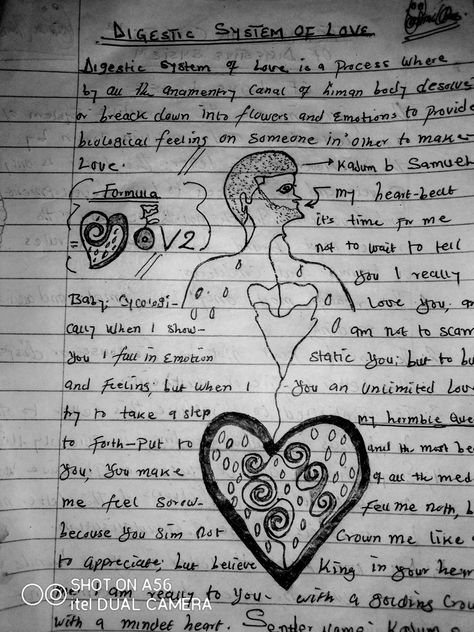 DIGESTIC SYSTEM OF LOVE
Digestic system of Love is a process where
by all the anamentry canal of human body desolve
or breack down into flowers and emotions to provide
biological feeling on someone in other to make
Love.
Kadum b Samuel
Formula
V2
my heart-beat
it's time for me
not to wait to tell
you I really
Love you, an
am not to scam
static you; but to bu
you an unlimited Love
my hormble Que
and the most be
of all the med
Feu me noth, b
Crown me like a
King in your hear
with a golding Crow
Baby: Cycologi-
cally when I show-
you I fall in emotion
and feeling; but when I
try to take a step
to Forth-Put to
you; you make
me feel sorow-
because you sim not
to appreciate; but believe
me I am ready to you-
with a mindet heart. Sender name: Kadum
SHOT ON A56
itel DUAL CAMERA